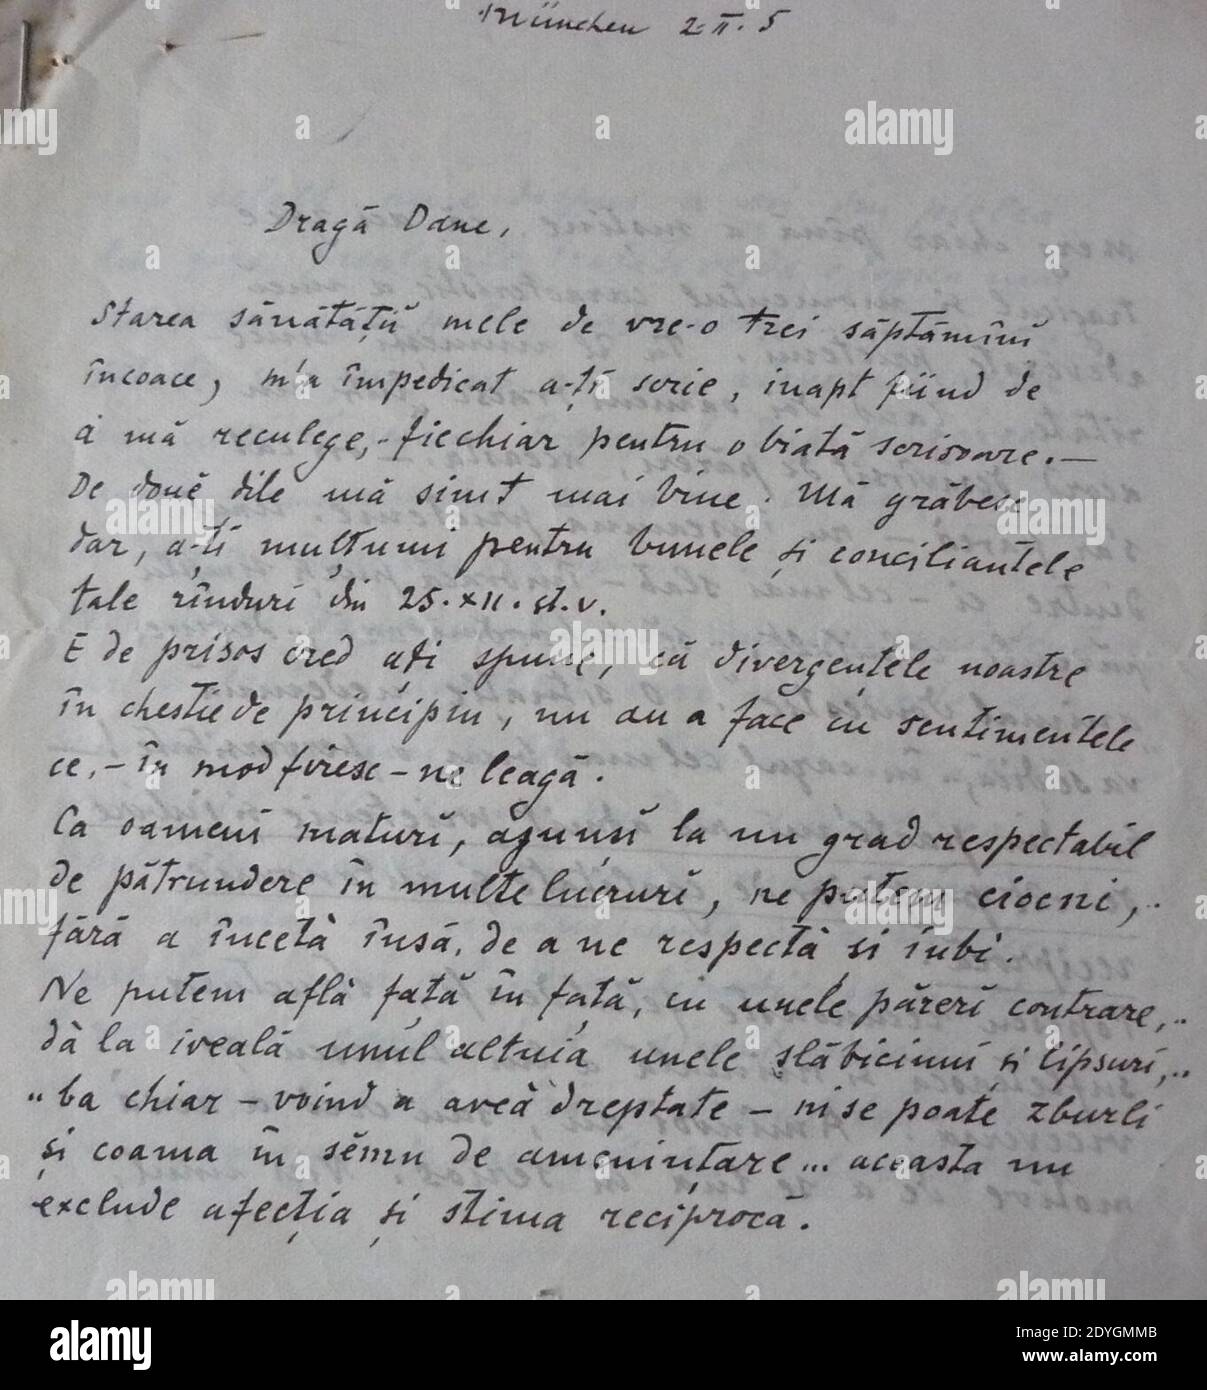 München 2.II.5
Dragă Dane,
Starea sănătății mele de vre-o trei săptămînĭ
încoace, m'a împedicat a-țĭ scrie, inapt fiind de
a mă reculege, - fiechiar pentru o biată scrisoare. —
De douĕ zile mă simt mai bine. Mă grăbesc
dar, a-țĭ mulțumi pentru bunele și conciliantele
tale rîndurĭ din 25.XII.st.v.
E de prisos cred ați spune, că divergențele noastre
în chestie de principiu, nu au a face cu sentimentele
ce, - în mod firesc - ne leagă.
Ca oamenĭ maturĭ, ajunșĭ la un grad respectabil
de pătrundere în multe lucrurĭ, ne putem ciocni, ..
fără a încetà însă, de a ne respectà si iubì.
Ne putem aflà față în față, cu unele părerĭ contrare, ..
dà la iveală unul altuia unele slăbiciunĭ și lipsurĭ, ..
.. ba chiar - voind a aveà dreptate - ni se poate zburli
și coama în sĕmn de amenințare ... aceasta nu
exclude afecția și stima reciprocă.
alamy
Image ID: 2DYGMMB
www.alamy.com